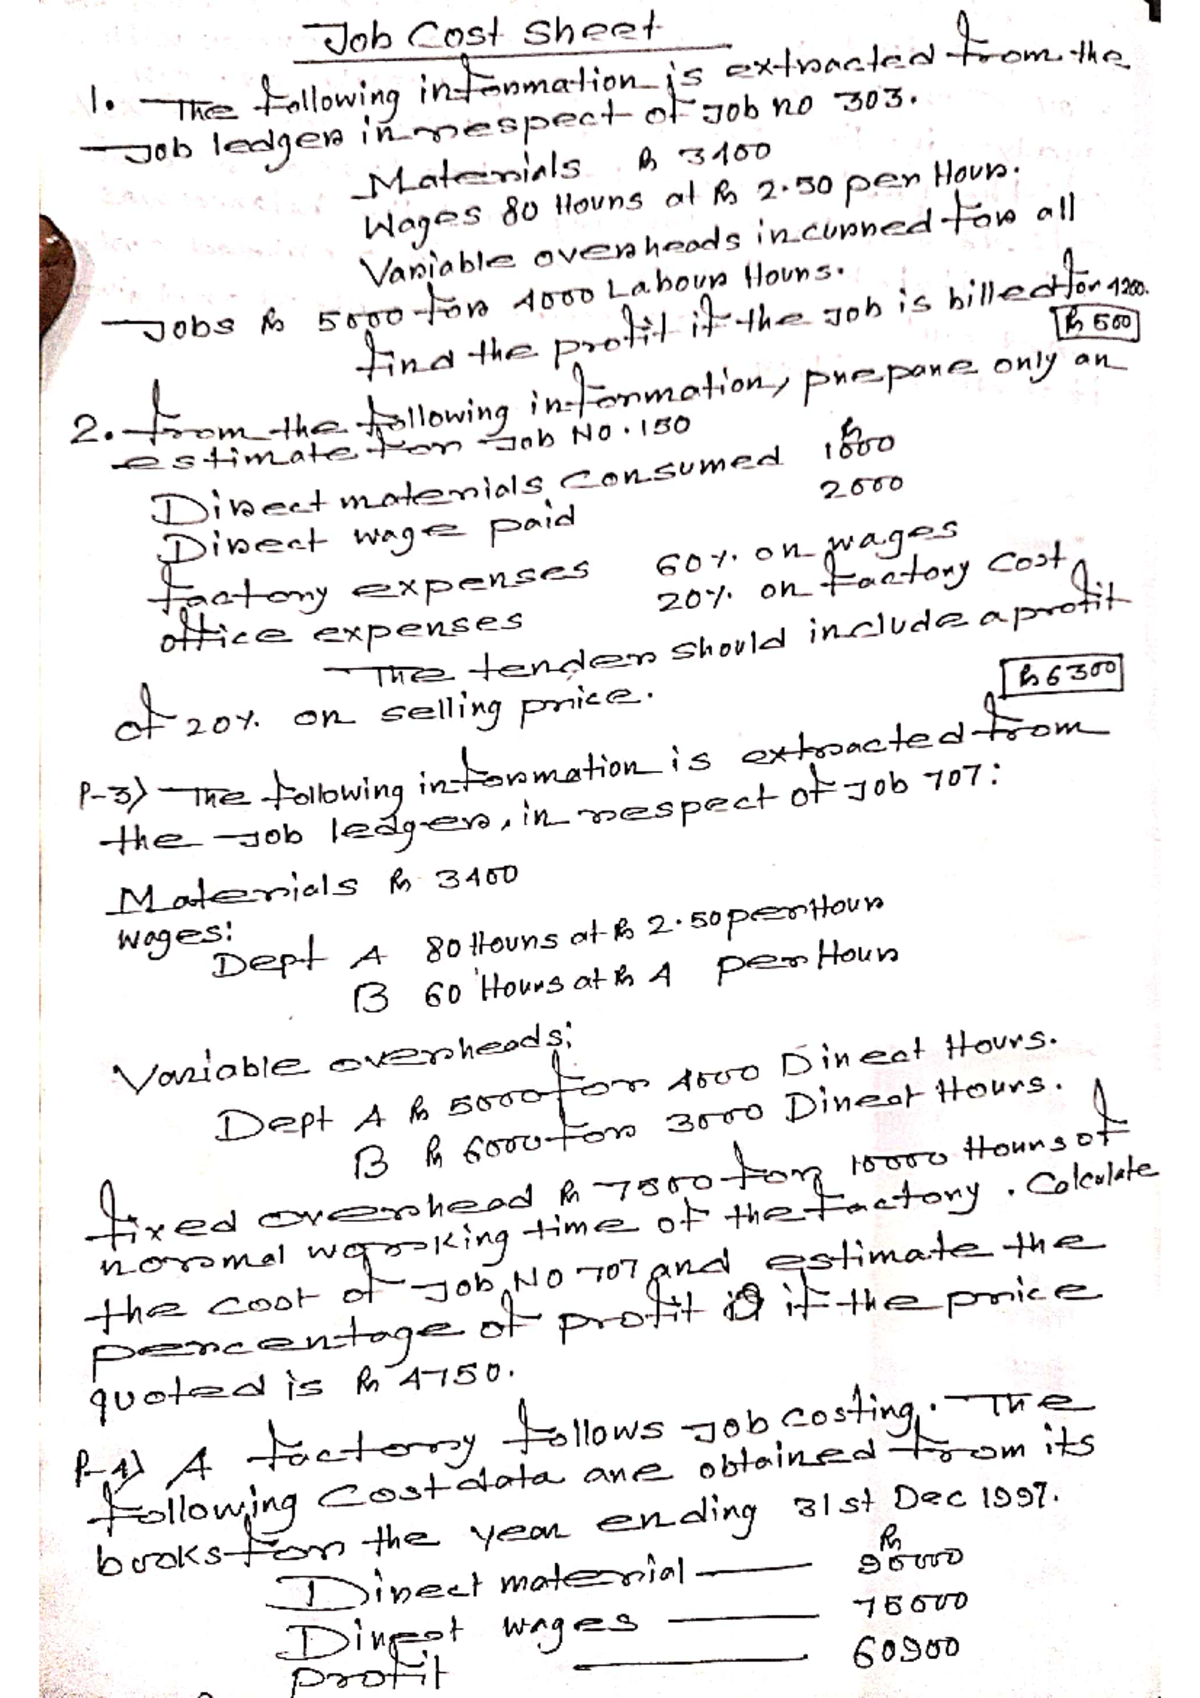 Job Cost Sheet
1. The following information is extracted from the
Job ledger in respect of Job no 303.
Materials Rs 3400
Wages 80 Hours at Rs 2.50 per Hour.
Variable overheads incurred for all
Jobs Rs 5000 for 4000 Labour Hours.
find the profit if the Job is billed for 4200.
Rs 500
2. from the following information, prepare only an
estimate for Job No. 150
Rs
Direct materials consumed 1000
Direct wage paid 2000
factory expenses 60% on wages
office expenses 20% on factory cost
The tender should include a profit
of 20% on selling price.
Rs 6300
P-3) The following information is extracted from
the Job ledger, in respect of Job 707:
Materials Rs 3400
wages:
Dept A 80 Hours at Rs 2.50 per Hour
B 60 Hours at Rs 4 per Hour
Variable overheads:
Dept A Rs 5000 for 4000 Direct Hours.
B Rs 6000 for 3000 Direct Hours.
fixed overhead Rs 7500 for 10000 Hours of
normal working time of the factory. Calculate
the cost of Job No 707 and estimate the
percentage of profit if the price
quoted is Rs 4750.
P-4) A factory follows Job costing. The
following cost data are obtained from its
books for the year ending 31st Dec 1997.
Rs
Direct material 90000
Direct wages 75000
profit 60900